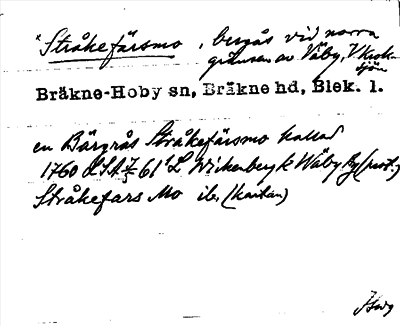 "Stråkefärsmo, bergås vid norra
gränsen av Väby, V Krok-
sjön
Bräkne-Hoby sn, Bräkne hd, Blek. l.
en Bärgrås Stråkefärsmo kallad
1760 LSA 61 L Wickenberg k Wäby By (prot.)
Stråkefars Mo ib. (kartan)